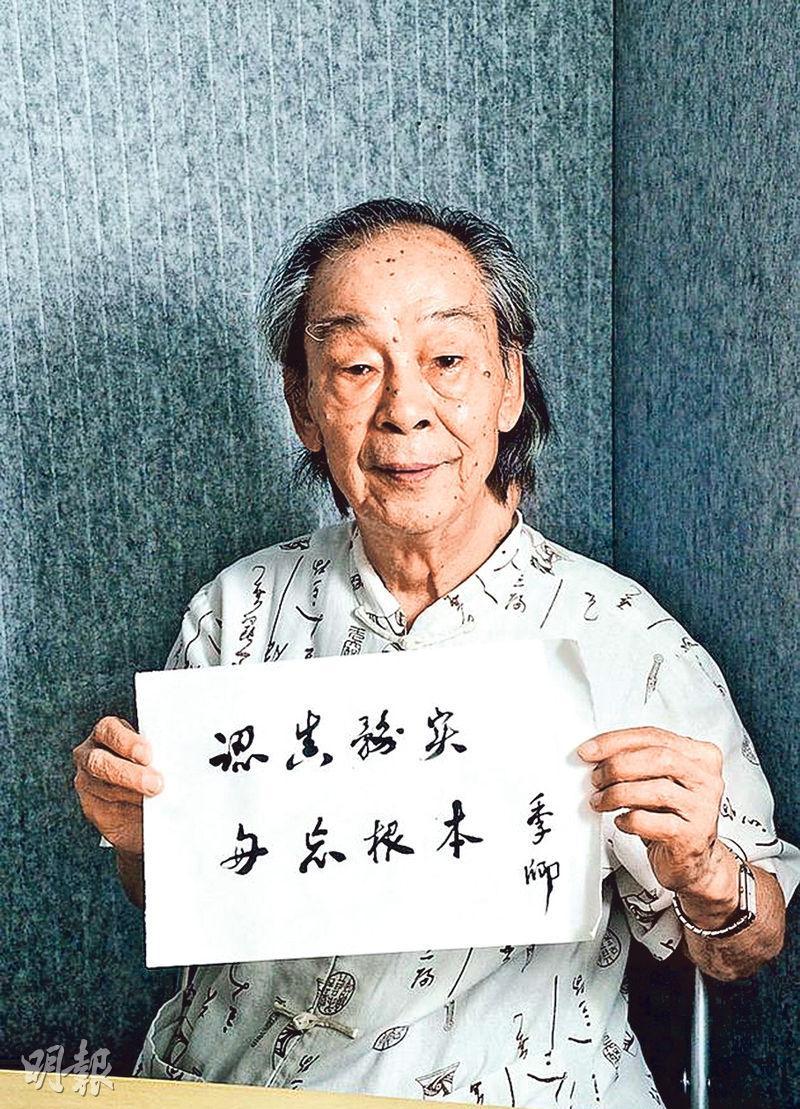 認真務实
毋忘根本
季卿
明報